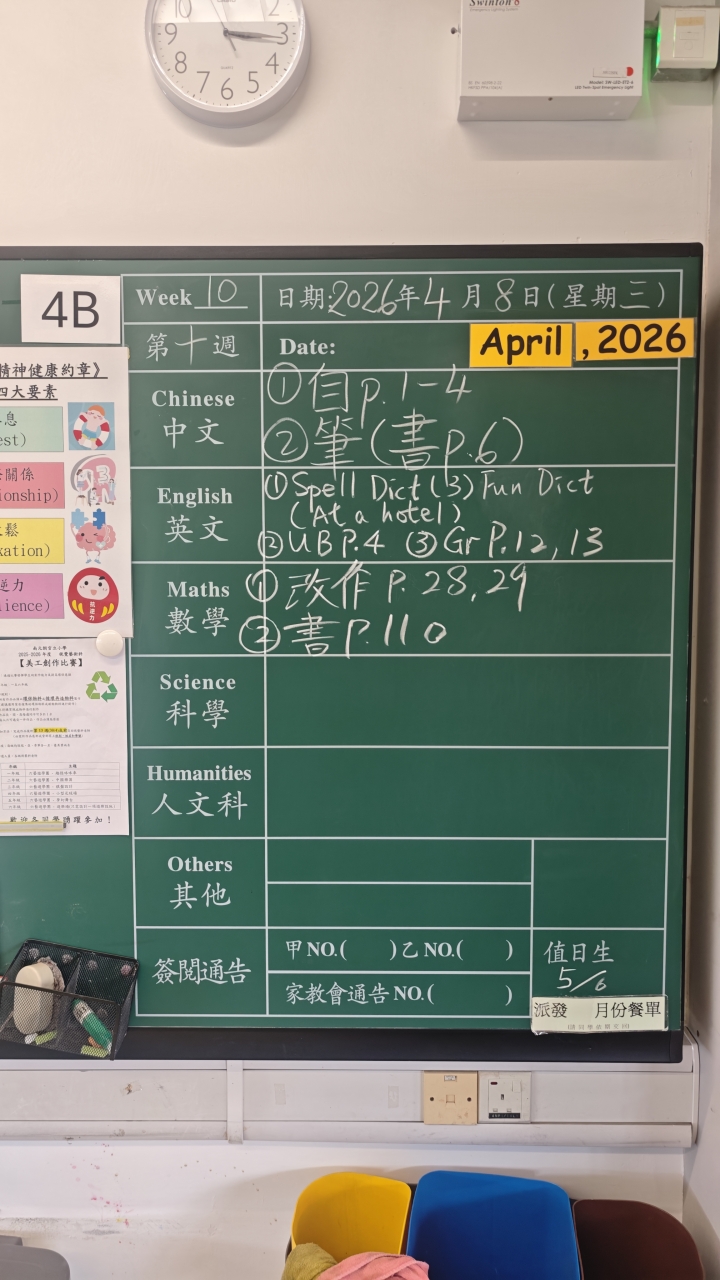 10 2 9 3 8 4 7 6 5
Swinton
Model: SW-LED-ST2-6
LED Twin Spot Emergency Light
4B
Week 10
日期:2026年4月8日(星期三)
第十週
Date:
April , 2026
精神健康約章》
四大要素
息
est)
關係
ionship)
鬆
xation)
逆力
ience)
Chinese
中文
①自p.1-4
②筆(書p.6)
English
英文
①Spell Dict(3) Fun Dict
(At a hotel)
②UB P.4 ③Gr P.12,13
Maths
數學
①改作 P.28,29
②書P.110
Science
科學
Humanities
人文科
Others
其他
簽閱通告
甲NO.( )乙NO.( )
家教會通告NO.( )
值日生
5/6
派發 月份餐單
【美工創作比賽】
歡迎各同學踴躍參加！